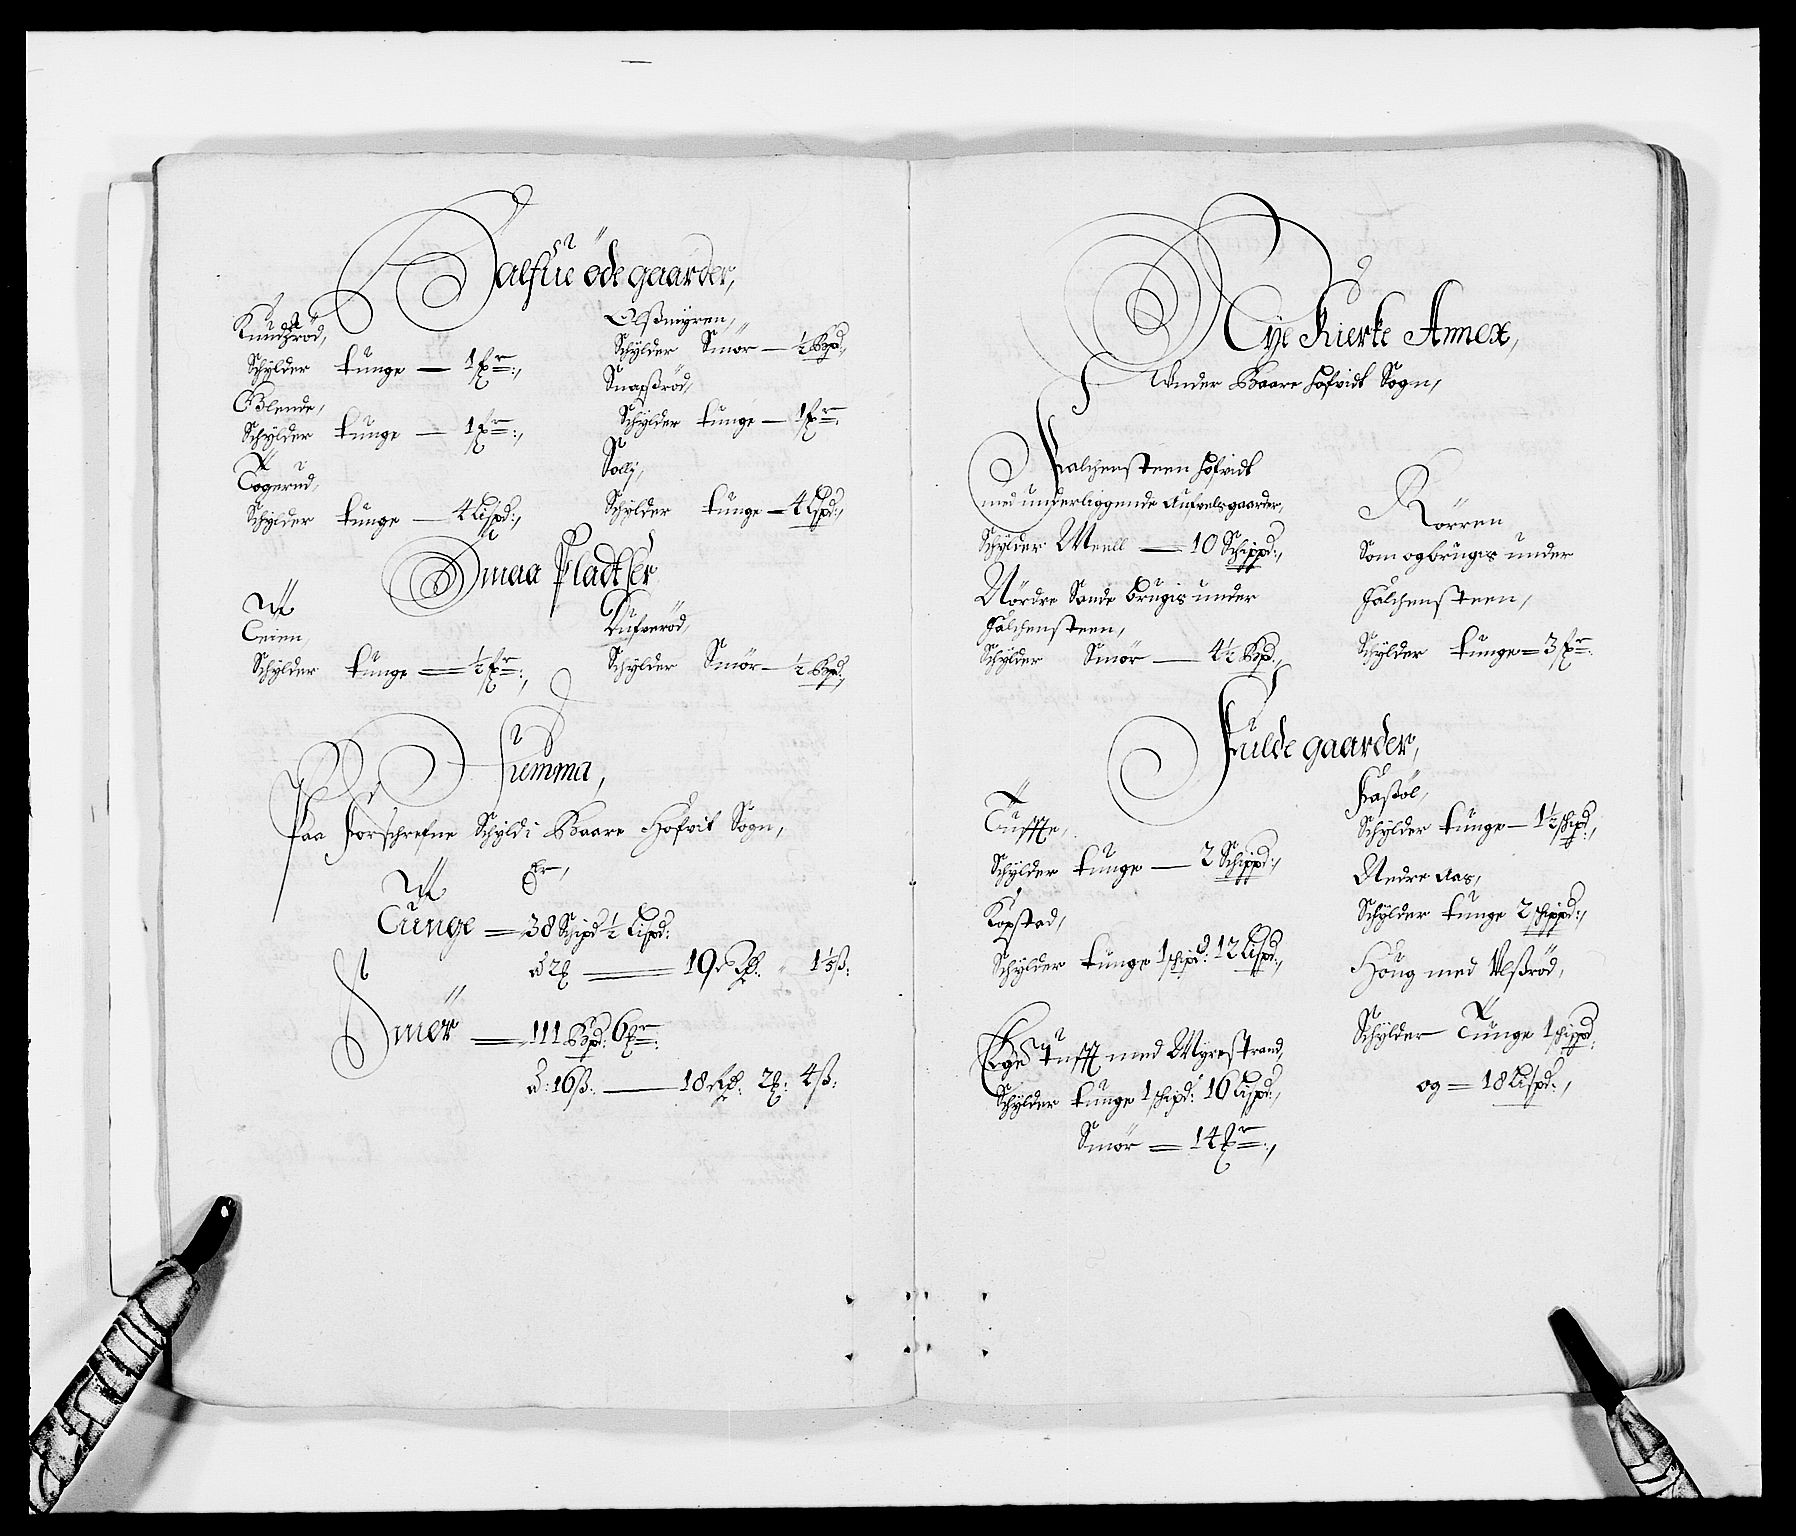 Halfue øde gaarder,
Knudzrød,
Schylder tunge — 1 fr:,
Blende,
Schylder tunge — 1 fr:,
Togerud,
Schylder tunge — 4 Lispd:,
Olsmyren,
Schylder Smør — ½ Bpd:,
Snapsrød,
Schylder tunge — 1 fr:
Solli,
Schylder tunge — 4 Lispd:,
Smaa Pladtser
Teien,
Schylder tunge — ½ fr:,
Dufverød,
Schylder Smør — ½ Bpd:,
Summa,
Paa Forschrefne Schyld i Baare Hofvit Sogn,
Er,
Tunge — 38 Schipd ½ Lispd:
19 Rd: 1½ ß:
Smør — 111 Bpd: 6
à: 16 ß: — 18 Rd: 2 4 ß:
Nye Kierke Amex,
Under Baare Hofvidt Sogn,
Falchensteen Hofvidt
med underliggende Aufvelsgaarder,
Schylder Meell — 10 Schippd:,
Nørdre Sande brugis under
Falchensteen,
Schylder Smør — 4½ Bpd:,
Rørren
Som og brugis under
Falchensteen,
Schylder tunge — 3 fr:
Fulde gaarder,
Tuffte,
Schylder tunge — 2 Schippd:,
Kopstad,
Schylder tunge 1 schipd: 12 Lispd:,
Tufft med Myrestrand,
Schylder tunge 1 schipd: 16 Lispd:,
Smør — 14
Faßøl,
Schylder tunge — 1½ schipd:,
Nedre Aas,
Schylder tunge 2 schippd:,
Houg med Ulsrød,
Schylder Tunge 1 schippd:
og — 18 Lispd:,